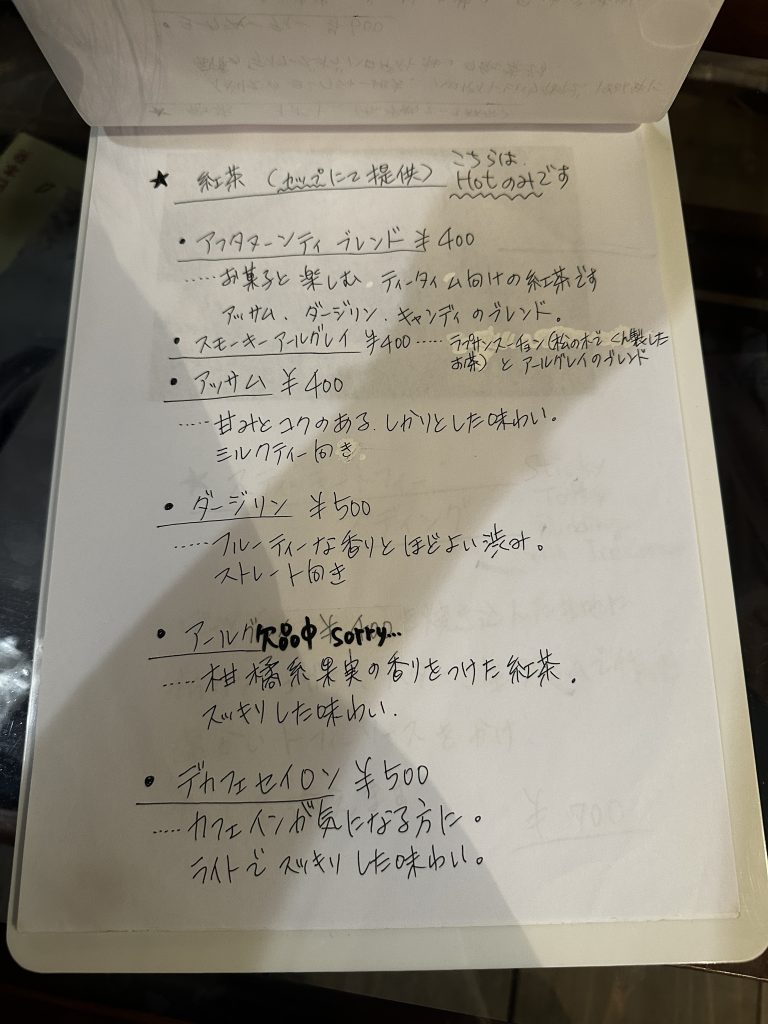 ★ 紅茶 (カップにて提供) こちらは
Hotのみです
• アフタヌーンティ ブレンド ¥400
……お菓子と楽しむ、ティータイム向けの紅茶です
アッサム、ダージリン、キャンディのブレンド。
• スモーキーアールグレイ ¥400 …… ラプサンスーチョン(松の木でくん製した
お茶) と アールグレイのブレンド
• アッサム ¥400
……甘みとコクのある、しかりとした味わい。
ミルクティー向き
• ダージリン ¥500
……フルーティーな香りとほどよい渋み。
ストレート向き
• アールグ欠品中 sorry...
……柑橘系果実の香りをつけた紅茶。
スッキリした味わい.
• デカフェセイロン ¥500
……カフェインが気になる方に。
ライトでスッキリした味わい。
¥700